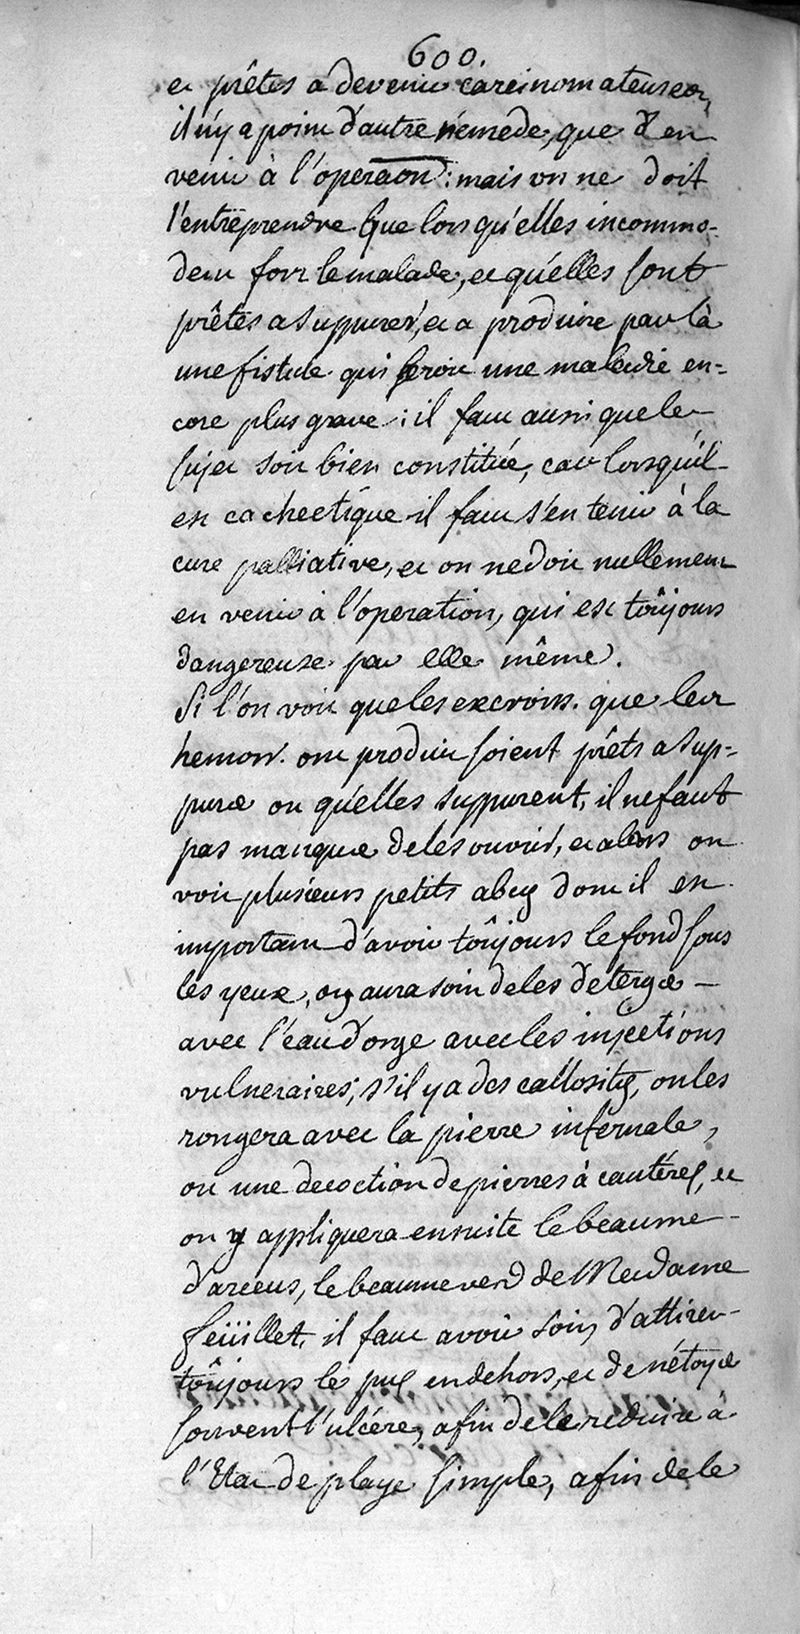 600.
et prêtes a devenir carcinomateuses,
il n'y a point d'autre remede, que d'en
venir à l'operaon : mais on ne doit
l'entreprendre que lors qu'elles incommo-
dent fort le malade, et qu'elles sont
prêtes a suppurer, et a produire par là
une fistule qui seroit une maladie en-
core plus grave : il faut aussi que le
sujet soit bien constitué, car lorsqu'il
est cachectique il faut s'en tenir à la
cure palliative, et on ne doit nullement
en venir à l'operation, qui est toûjours
dangereuse par elle même.
Si l'on voit que les excroiss. que les
hemorr. ont produit soient prêts a sup-
purer ou qu'elles suppurent, il ne faut
pas manquer de les ouvrir, et alors on
voit plusieurs petits abcy dont il est
important d'avoir toûjours le fond sous
les yeux, on aura soin de les deterger
avec l'eau d'orge avec les injections
vulneraires, s'il y a des callosités, on les
rongera avec la pierre infernale,
ou une decoction de pierres à cautéres, et
on y appliquera ensuite le beaume
d'arceus, le beaume verd de Madame
feüillet, il faut avoir soin d'attirer
toûjours le pus en dehors, et de nétoyer
souvent l'ulcére, afin de le reduire à
l'Etat de playe simple, afin de le